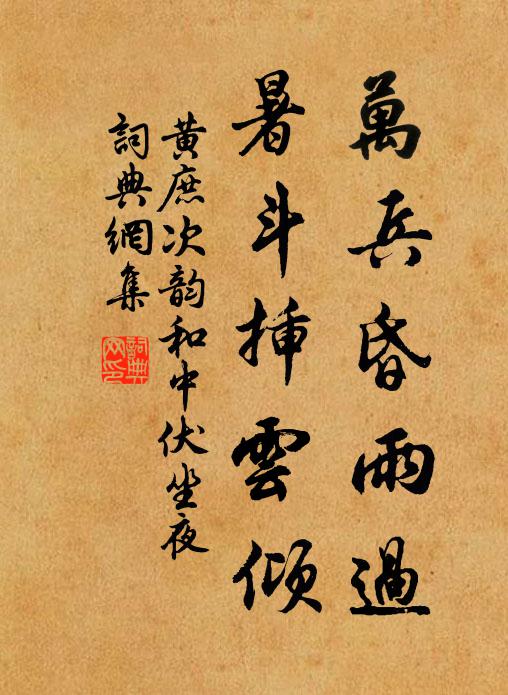 萬兵昏雨過
暑斗揷雲傾
黃庶次韵和中伏坐夜
詞典網集
詞典网印